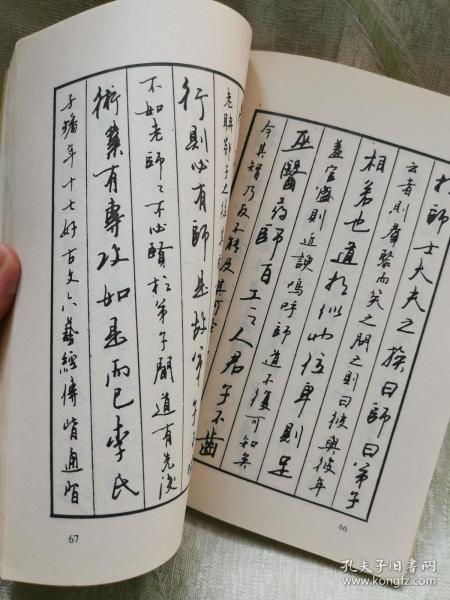 於師士大夫之族曰師曰弟子
云者則羣聚而笑之問之則曰彼與彼年
相若也道相似也位卑則足
羞官盛則近諛嗚呼師道不復可知矣
巫醫藥師百工之人君子不齒
今其智乃反不能及其可
66
老聃郯子之徒
行則必有師是故弟子不
不如老師〻不必賢於弟子聞道有先後
術業有專攻如是而已李氏
子蟠年十七好古文六藝經傳皆通習
67
孔夫子旧书网
www.kongfz.com